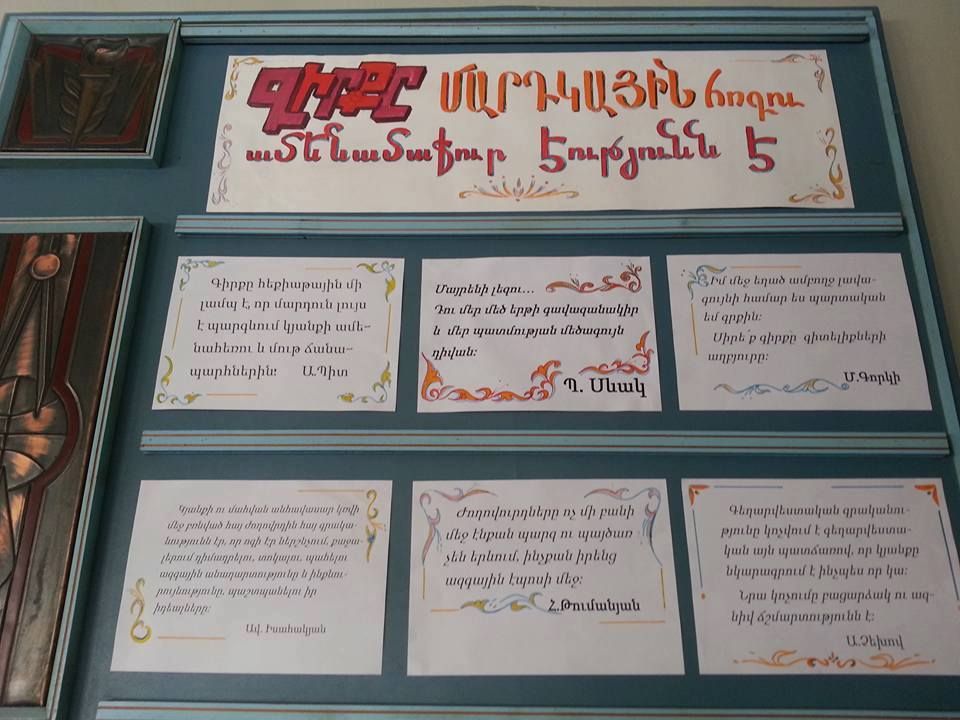 ԳԻՐՔԸ ՄԱՐԴԿԱՅԻՆ հոգու
ամենամաքուր Էությունն Է
Գիրքը հեքիաթային մի
լամպ է, որ մարդուն լույս
է պարգևում կյանքի ամե-
նահեռու և մութ ճանա-
պարհներին: Ա.Պիտ
Մայրենի լեզու...
Դու մեր մեծ երթի գավազանակիր
և մեր պատմության մեծագույն
դիվան:
Պ. Սևակ
Իմ մեջ եղած ամբողջ լավա-
գույնի համար ես պարտական
եմ գրքին:
Սիրե՛ք գիրքը գիտելիքների
աղբյուրը:
Մ.Գորկի
Կյանքի ու մահվան անհավասար կռվի
մեջ բռնված հայ ժողովրդին հայ գրակա-
նությունն էր, որ ոգի էր ներշնչում, քաջա-
լերում դիմադրելու, տոկալու, պահելու
ազգային անաղարտությունը և ինքնու-
րույնությունը, պաշտպանելու իր
իդեալները:
Ավ. Իսահակյան
Ժողովուրդները ոչ մի բանի
մեջ էնքան պարզ ու պայծառ
չեն երևում, ինչքան իրենց
ազգային էպոսի մեջ:
Հ.Թումանյան
Գեղարվեստական գրականու-
թյունը կոչվում է գեղարվեստա-
կան այն պատճառով, որ կյանքը
նկարագրում է ինչպես որ կա:
Նրա կոչումը բացարձակ ու ազ-
նիվ ճշմարտությունն է:
Ա.Չեխով